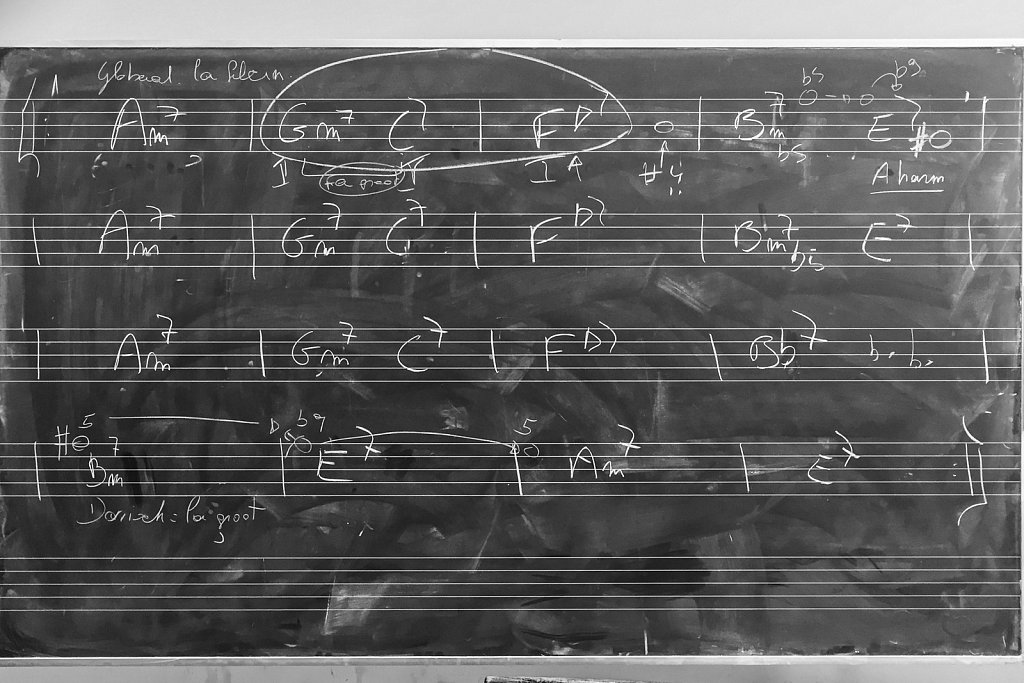 Globaal: la klein
b5 b9
Am7 Gm7 C7 F D7 Bm7 b5 E7 #
I fa groot II I #4!! A harm
Am7 Gm7 C7 F D7 Bm7 b5 E7
Am7 Gm7 C7 F D7 Bb7 b. b.
#5 b9 5
Bm7 E7 Am7 E7
Dorisch: la groot